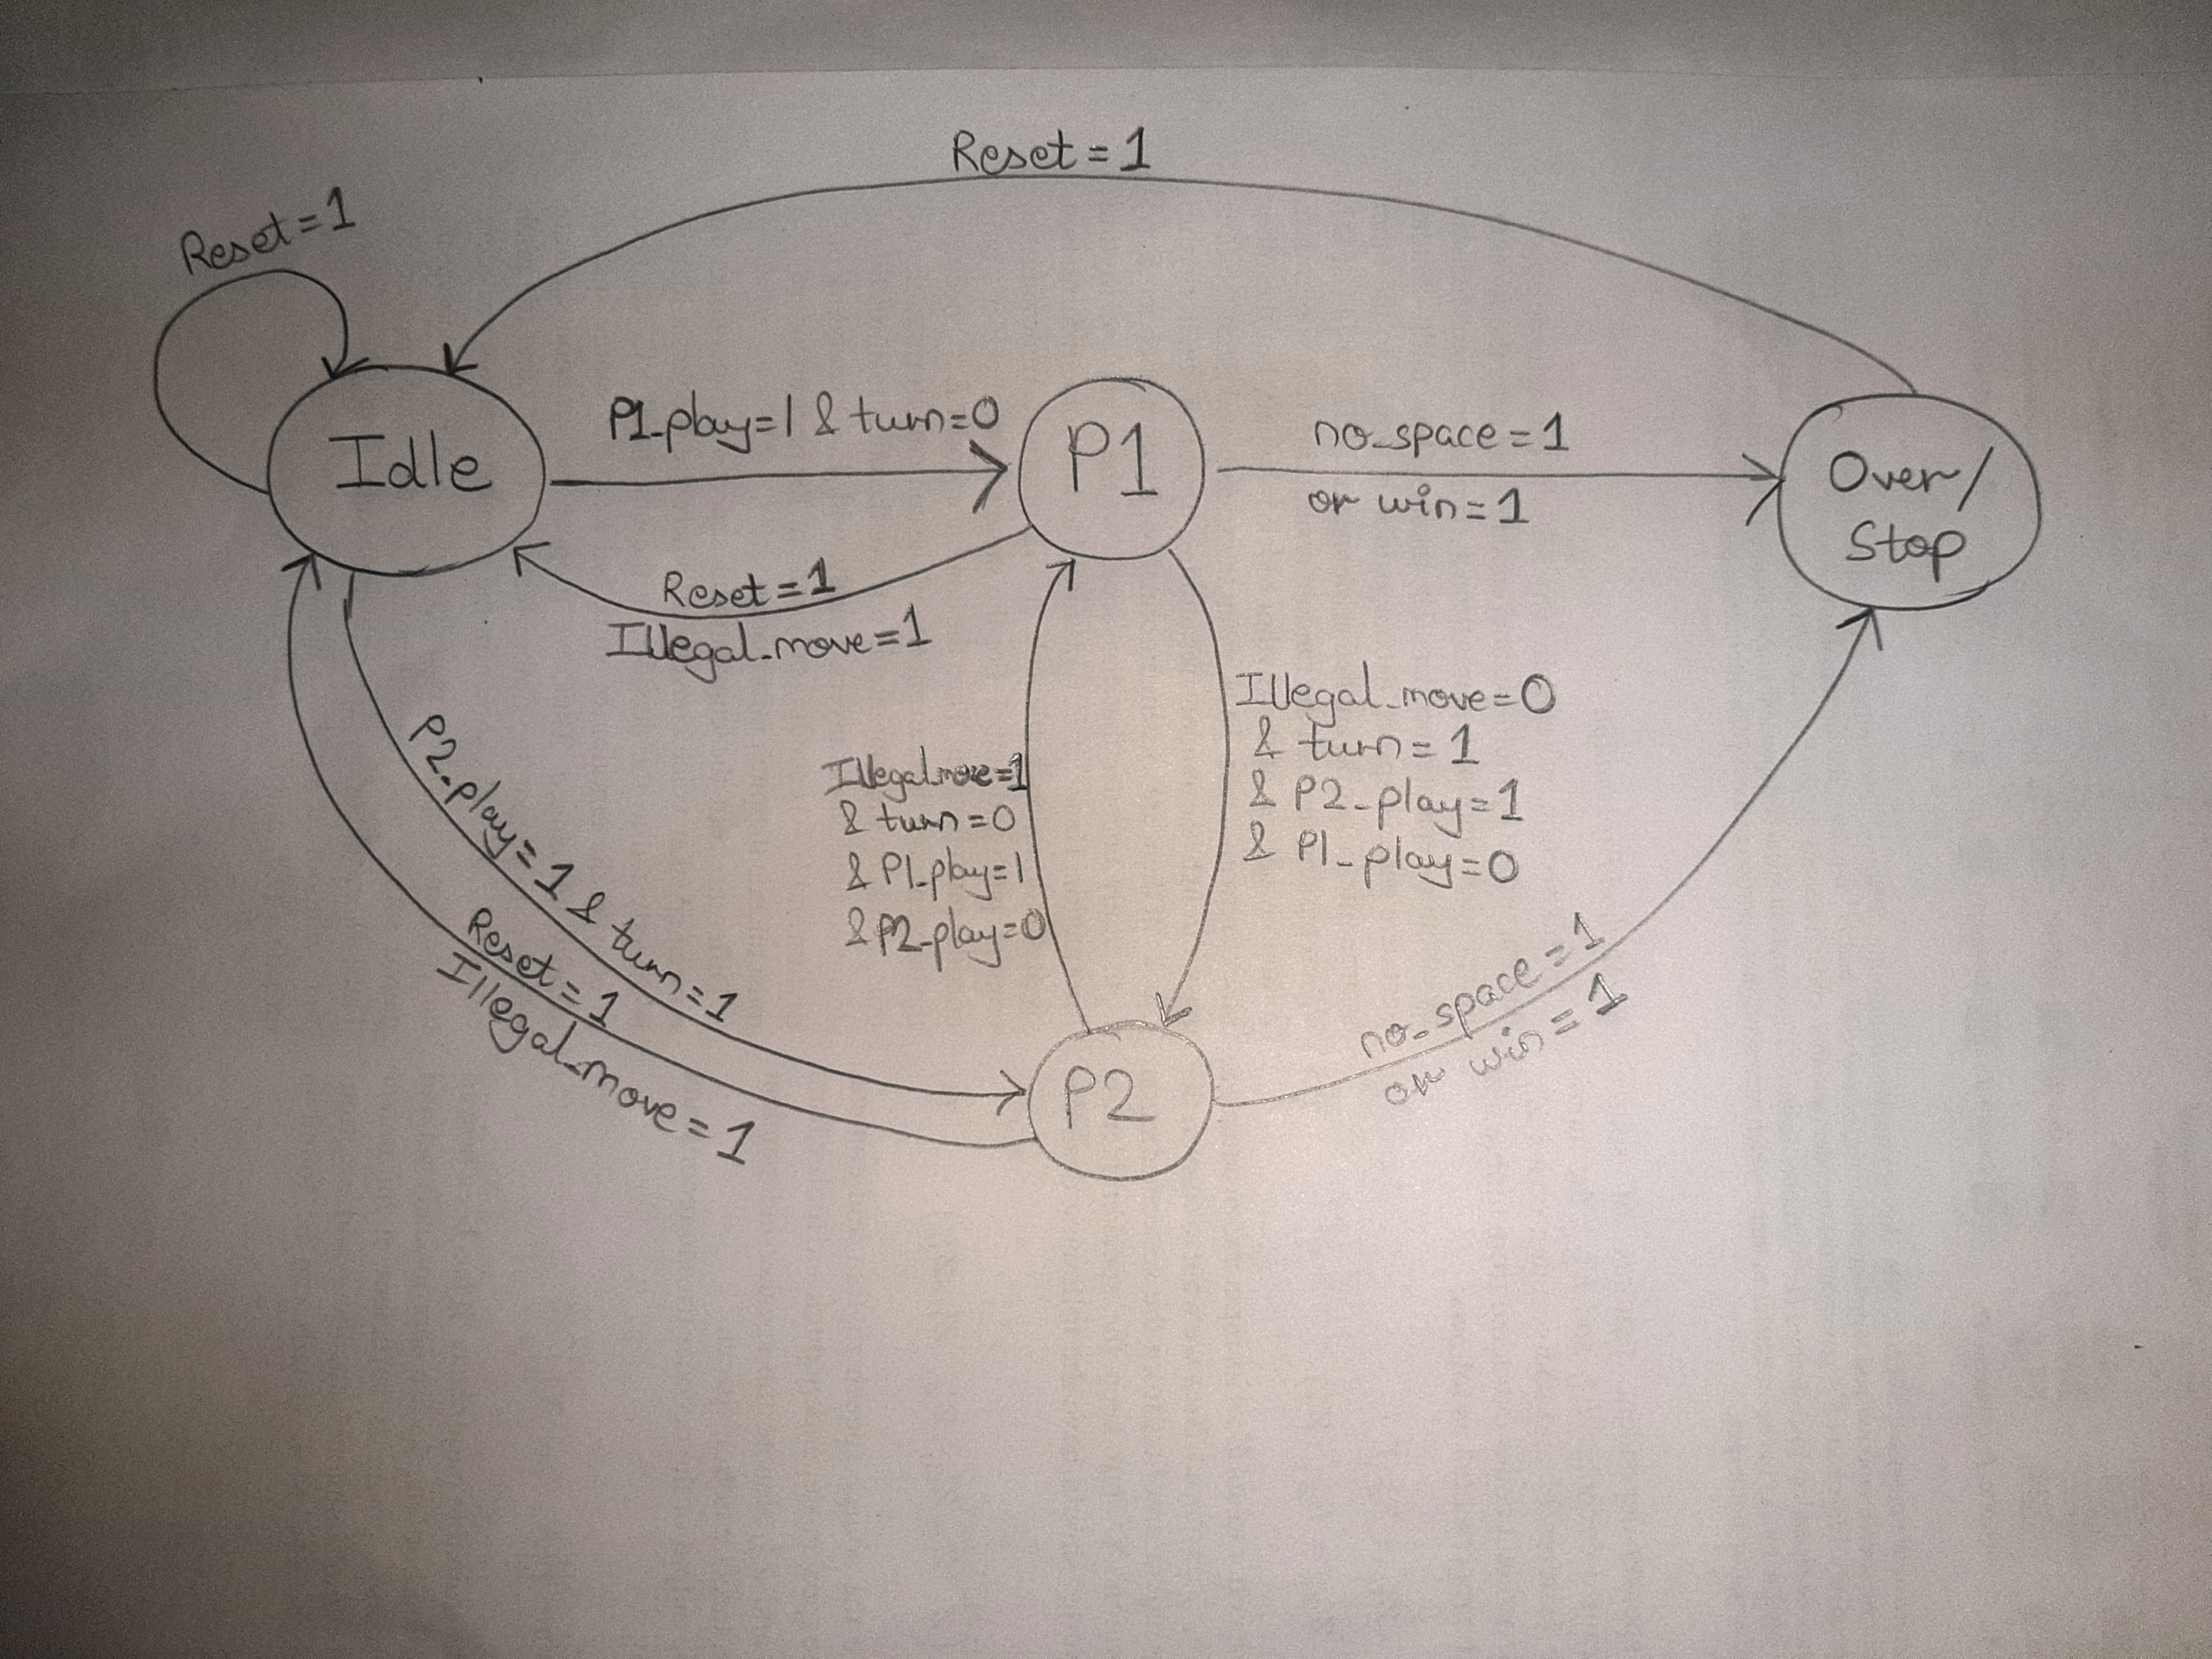 Reset = 1
Reset = 1
P1_play=1 & turn=0
no_space = 1
Idle
P1
Over/
or win = 1
Stop
Reset = 1
Illegal_move=1
Illegal_move=0
& turn = 1
& P2_play=1
& P1_play=0
Illegal_move=1
& turn=0
& P1_play=1
& P2_play=0
P2_play=1 & turn=1
Reset = 1
Illegal_move = 1
no_space = 1
or win = 1
P2